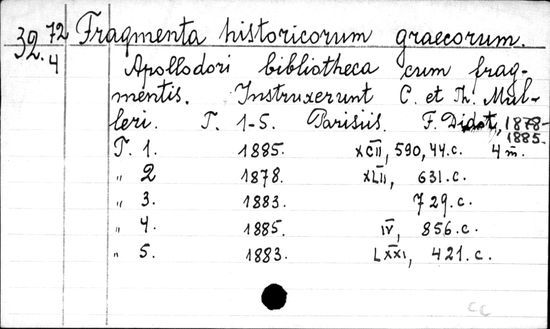 39. 72/4 Fragmenta historicorum graecorum.
Apollodori bibliotheca cum frag-
mentis. Instruxerunt C. et Th. Mül-
leri. T. 1-5. Parisiis. F. Didot, 1878-
1885.
T. 1. 1885. XCII, 590, 44.c. 4 m.
„ 2 1878. XLII, 631.c.
„ 3. 1883. 729.c.
„ 4. 1885. IV, 856.c.
„ 5. 1883. LXXI, 421.c.
cc